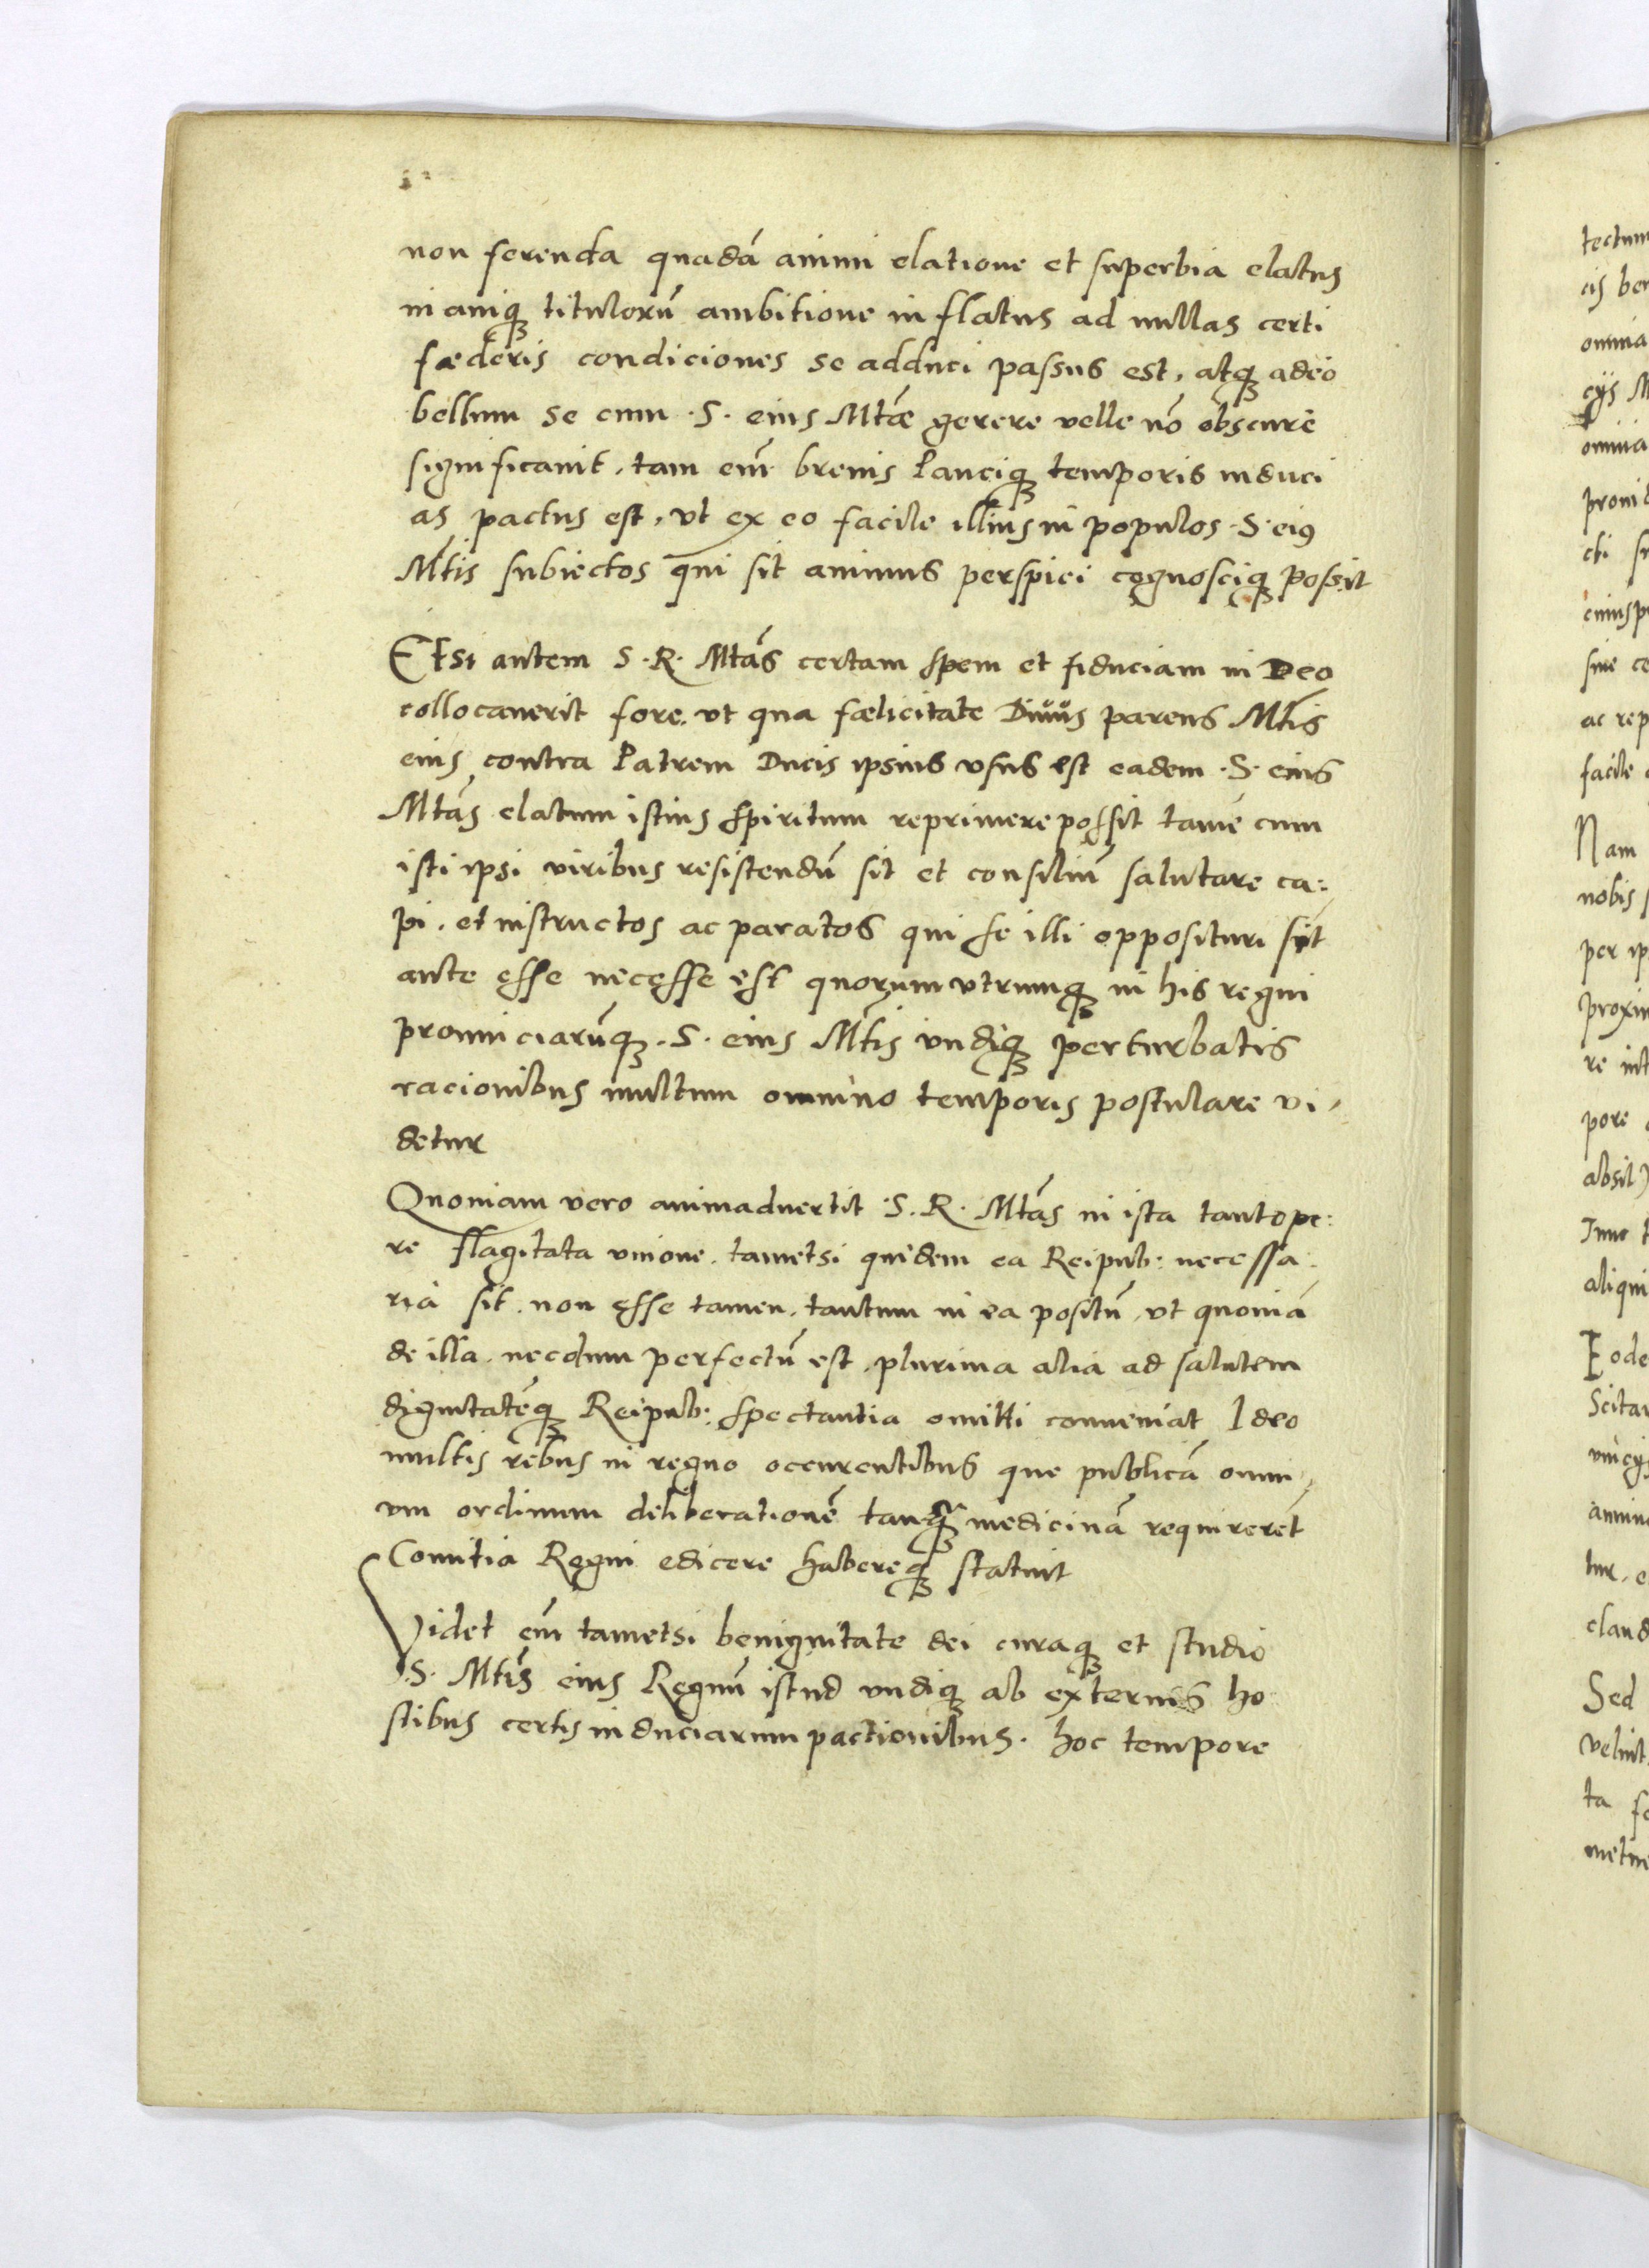 non ferenda quadā animi elatione et superbia elatus
inaniq titulorū ambitione inflatus ad nullas certi
fæderis condiciones se adduci passus est, atq adeo
bellum se cum .S. eius Mtāe gerere velle nō obscure
significauit, tam em̄ breuis Pauciq temporis induci
as pactus est, vt ex eo facile illius in populos .S. ei9
Mtis subiectos qui sit animus perspici cognosciq possit
Etsi autem S.R. Mtās certam spem et fiduciam in Deo
collocauerit fore, vt qua fælicitate Diuus parens Mtis
eius contra Patrem Ducis ipsius vsus est eadem .S. eius
Mtās elatum istius spiritum reprimere possit tamē cum
isti ipsi viribus resistendū sit et consiliū salutare ca:
pi, et instructos ac paratos qui se illi opposituri sīt
ante esse necesse est quorum vtrumq in his regni
prouinciarūq. S. eius Mtis vndiq perturbatis
racionibus multum omnino temporis postulare vi,
detur
Quoniam vero animaduertit .S.R. Mtās in ista tantope:
re flagitata vnione, tametsi quidem ea Reipub: necessa:
ria sit, non esse tamen, tantum in ea positū, vt quoniā
de illa, necdum perfectū est, plurima alia ad salutem
dignitatēq Reipub: spectantia omitti conueniat Ideo
multis rebus in regno occurentibus que publicā omni,,
vm ordinum deliberationē tanq̃ medicinā requirerēt
Comitia Regni edicere habereq statuit
Videt em̄ tametsi benignitate dei curaq et studio
.S. Mtis eius Regnū istud vndiq ab externis ho
stibus certis induciarum pactionibus. hoc tempore
tectum
omnia
omnia
ac rep
facile
Nam
nobis
per ip
pore
absit
aliqui
Sed
ta